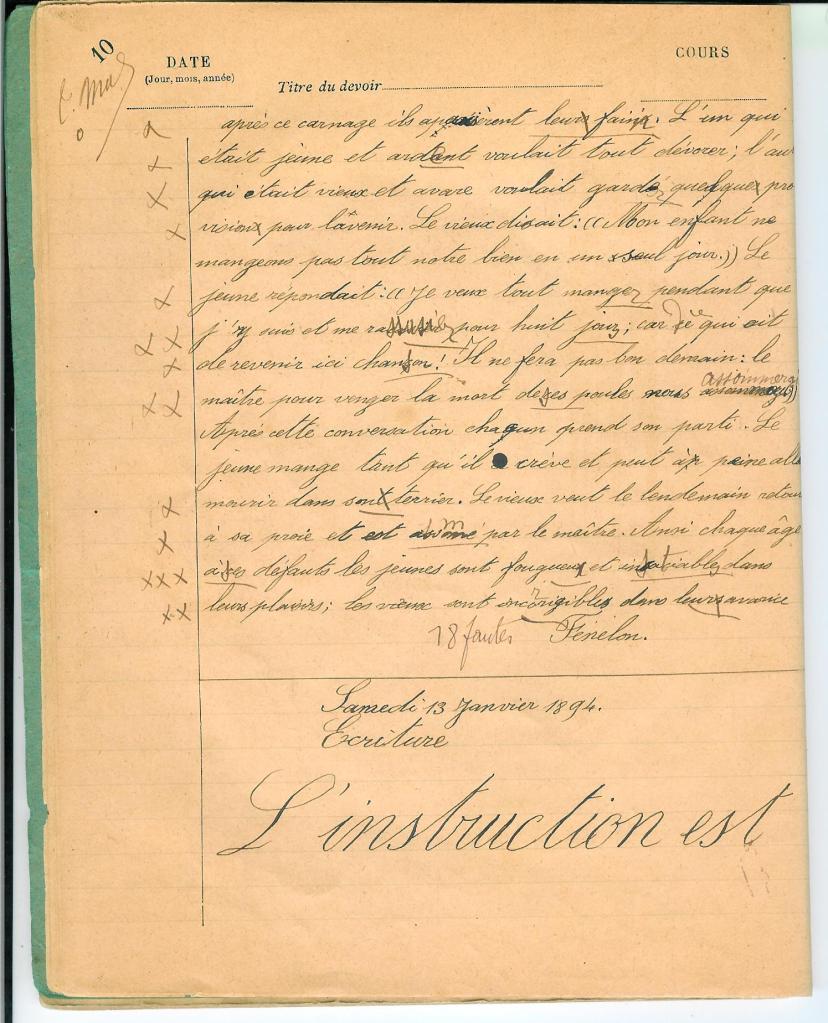 10
DATE
(Jour, mois, année)
COURS
Titre du devoir
après ce carnage ils apaisèrent leurs faims. L'un qui
était jeune et ardent voulait tout dévorer; l'au
qui était vieux et avare voulait gardé quelques pro
visions pour l'avenir. Le vieux disait: ((Mon enfant ne
mangeons pas tout notre bien en un seul jour.)) Le
jeune répondait: ((Je veux tout manger pendant que
j'y suis et me pour huit jours; car qui
de revenir ici chanson! Il ne fera pas bon demain: le
maître pour venger la mort de ses poules nous assommera))
Après cette conversation chaqun prend son parti. Le
jeune mange tant qu'il crève et peut à peine alle
mourir dans sont terrier. Le vieux veut le lendemain retou
à sa proie et est par le maître. Ainsi chaque âge
à ses défauts les jeunes sont fougueux et insatiables dans
leurs plaisirs; les vieux sont incorrigibles dans leurs avarice
18 fautes Fénelon.
Samedi 13 Janvier 1894.
Ecriture
L'instruction est